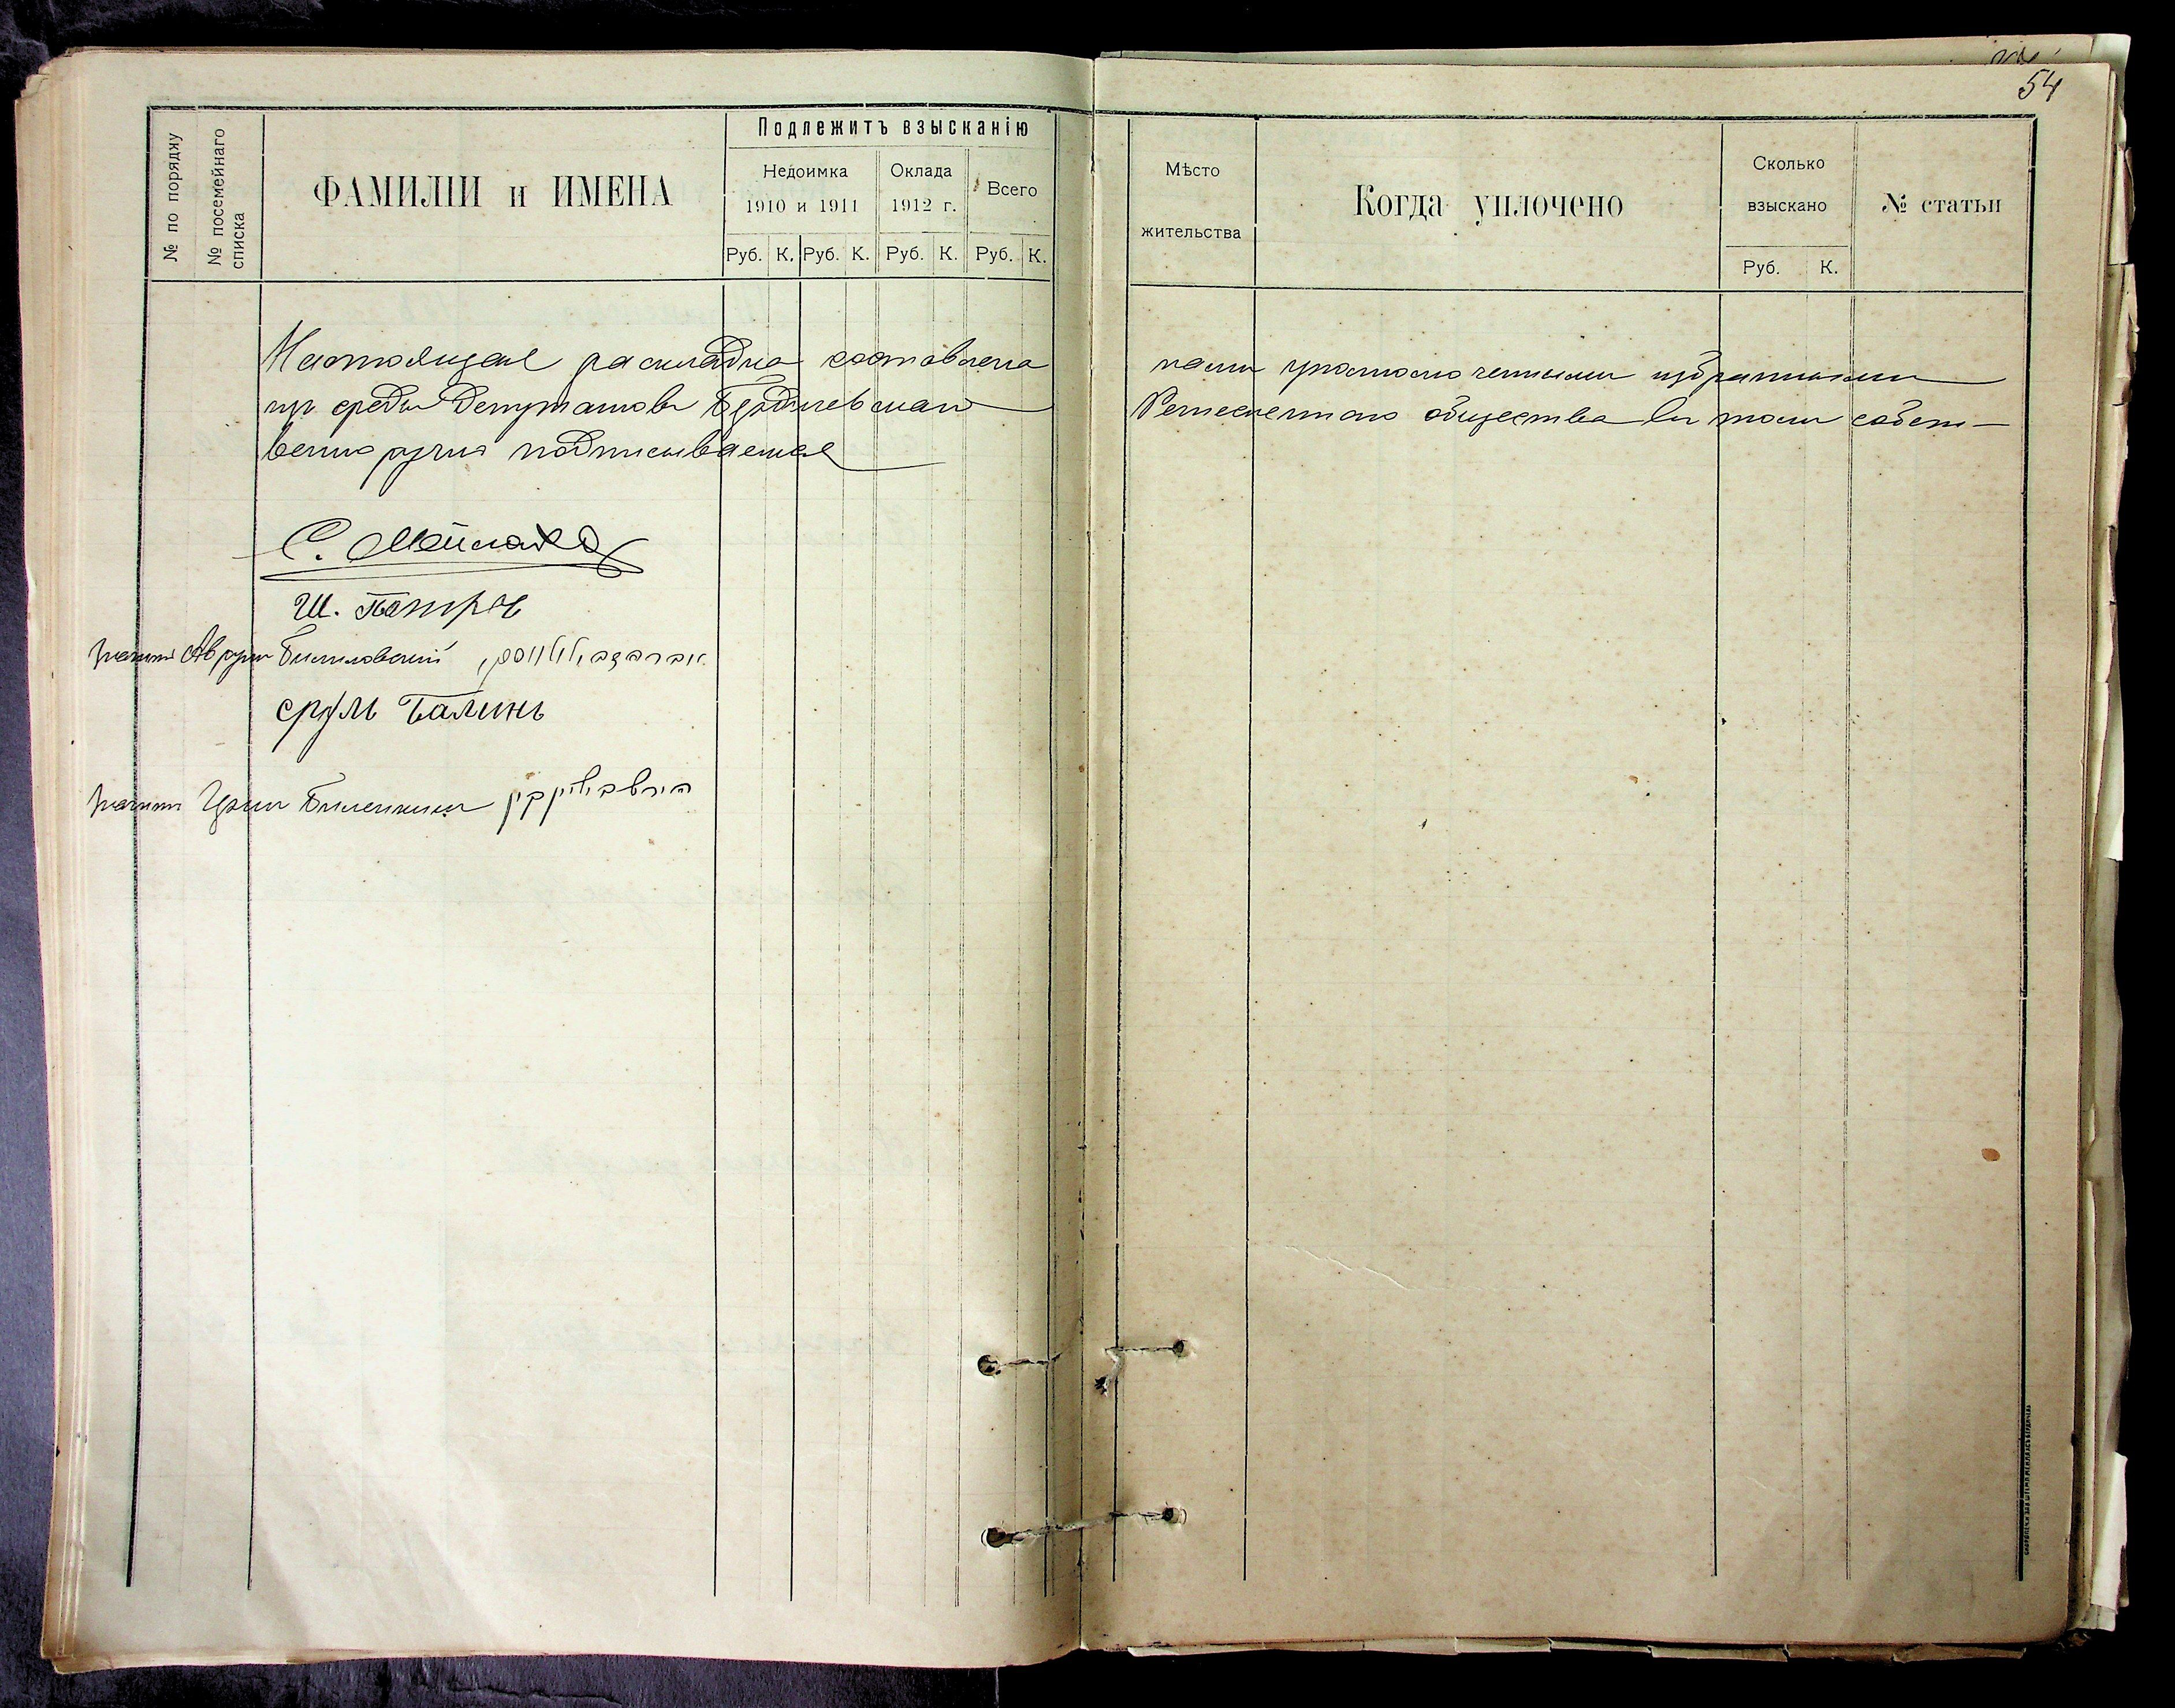 54
№ по порядку
№ посемейнаго списка
ФАМИЛІИ и ИМЕНА
Подлежитъ взысканію
Недоимка
1910 и 1911
Оклада
1912 г.
Всего
Руб. К. Руб. К. Руб. К. Руб. К.
Мѣсто
жительства
Когда уплочено
Сколько
взыскано
Руб. К.
№ статьи
Настоящая раскладка составлена нами уполномоченными избранными
изъ среды депутатовъ Бердичевскаго Ремесленнаго общества въ томъ собст-
венноручно подписываемся
С.
Ш.
Сруль Балинъ